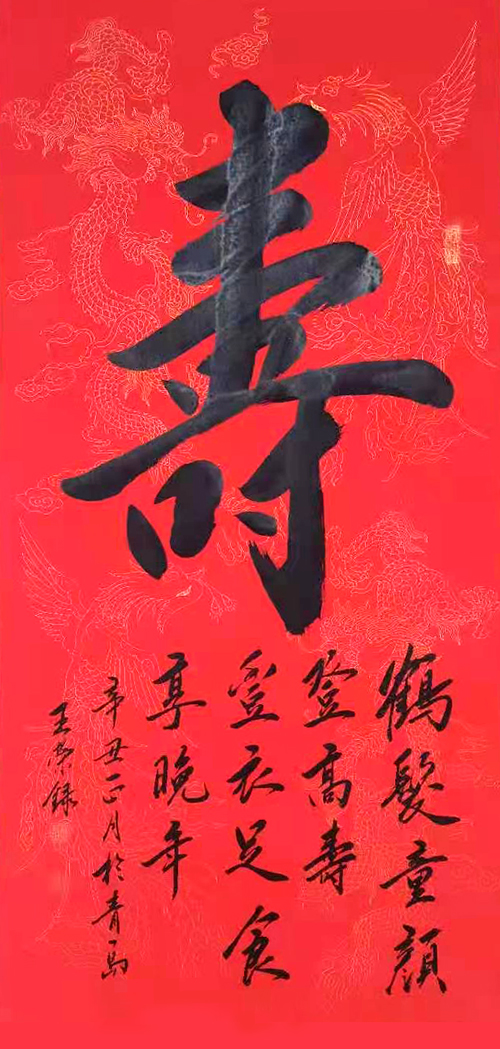 壽
鶴髮童顏
登高壽
豐衣足食
享晚年
辛丑正月於青島
王榮錄